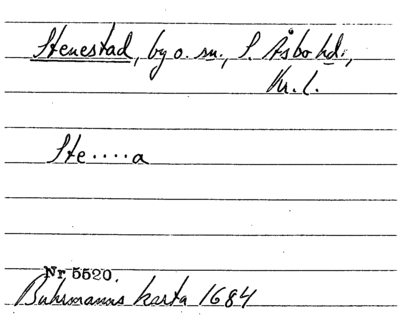 Stenestad, by o. sn., S. Åsbo hd.,
Kr. l.
Ste....a
Nr 5520.
Buhrmanns karta 1684